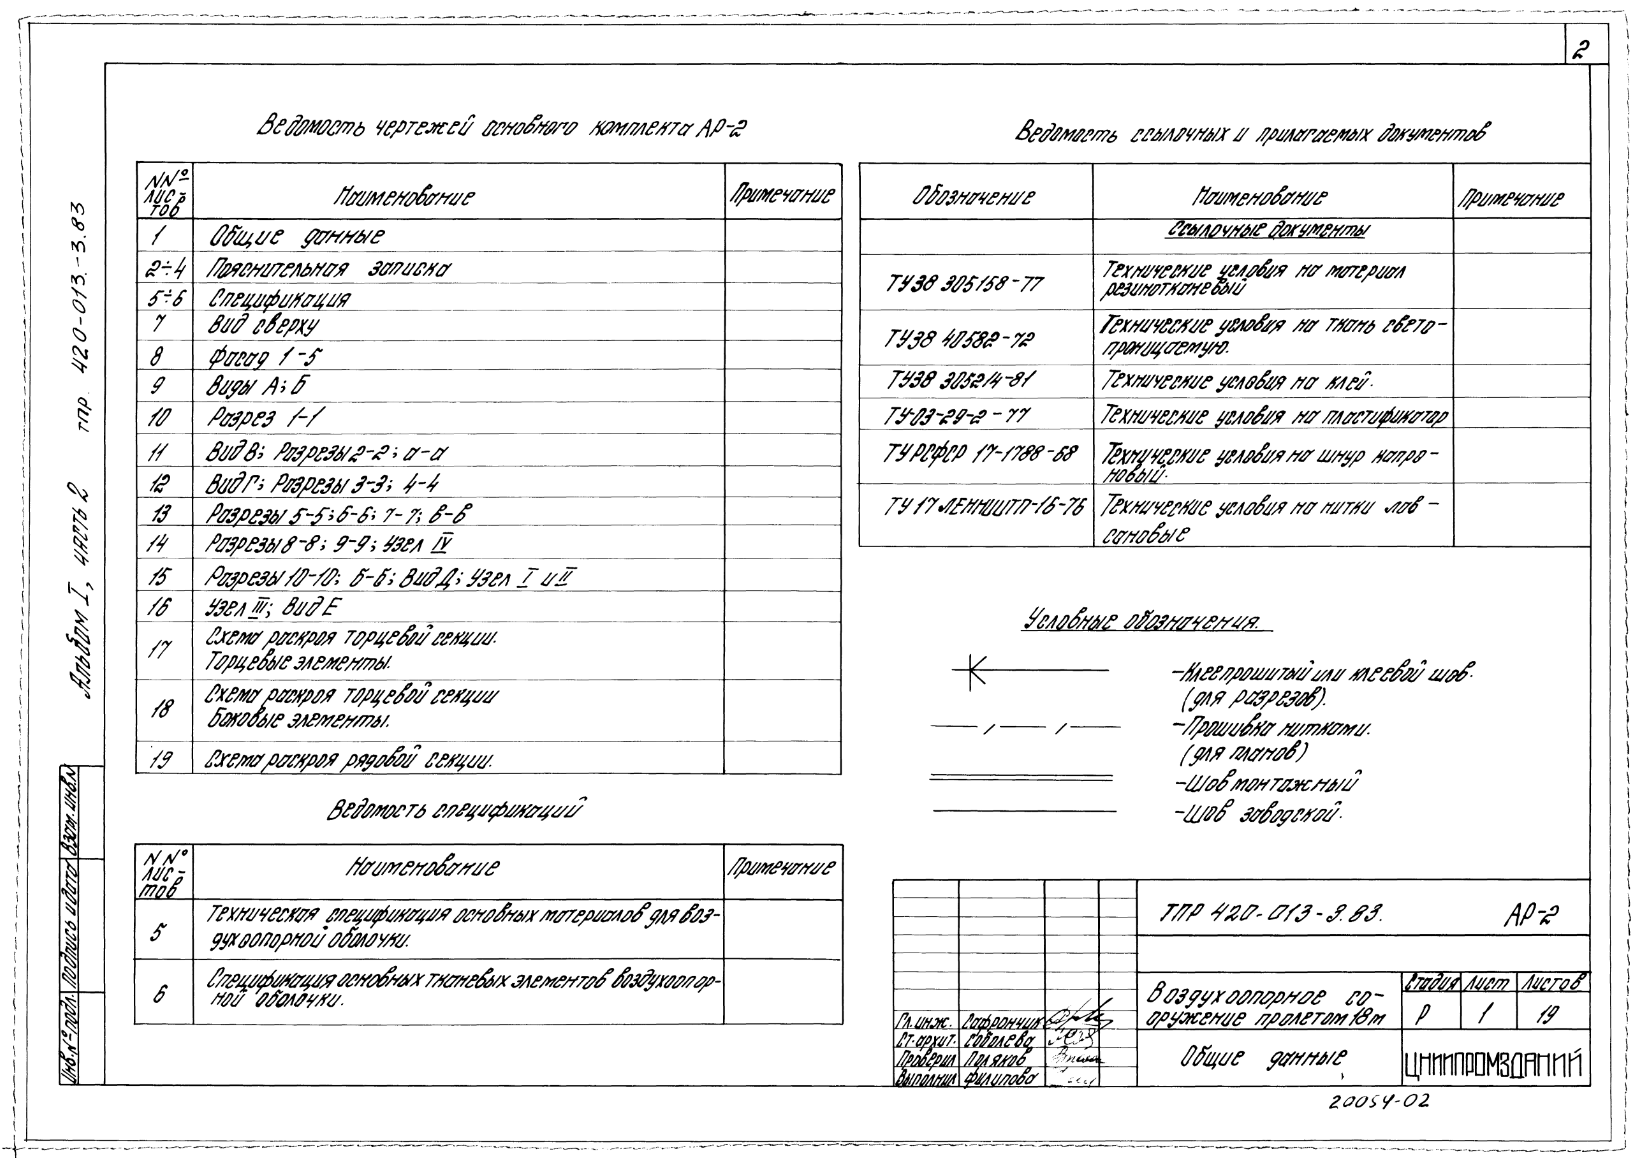 2
Альбом I, часть 2 тпр. 420-013.-3.83
Ведомость чертежей основного комплекта АР-2
NNº лис-тов Наименование Примечание
1 Общие данные
2÷4 Пояснительная записка
5÷6 Спецификация
7 Вид сверху
8 Фасад 1-5
9 Виды А; Б
10 Разрез 1-1
11 Вид В; Разрезы 2-2; а-а
12 Вид Г; Разрезы 3-3; 4-4
13 Разрезы 5-5; 6-6; 7-7; в-в
14 Разрезы 8-8; 9-9; Узел IV
15 Разрезы 10-10; б-б; Вид Д; Узел I и II
16 Узел III; Вид Е
17 Схема раскроя торцевой секции.
Торцевые элементы.
18 Схема раскроя торцевой секции
Боковые элементы.
19 Схема раскроя рядовой секции.
Ведомость спецификаций
NNº лис-тов Наименование Примечание
5 Техническая спецификация основных материалов для воз-
духоопорной оболочки.
6 Спецификация основных тканевых элементов воздухоопор-
ной оболочки.
Ведомость ссылочных и прилагаемых документов
Обозначение Наименование Примечание
Ссылочные документы
ТУ38 305158-77 Технические условия на материал
резинотканевый
ТУ38 40582-72 Технические условия на ткань свето-
проницаемую.
ТУ38 305214-81 Технические условия на клей.
ТУ-03-29-2-77 Технические условия на пластификатор
ТУ РСФСР 17-1788-68 Технические условия на шнур капро-
новый.
ТУ 17 ЛЕННИИТП-16-76 Технические условия на нитки лав-
сановые
Условные обозначения.
-Клеепрошитый или клеевой шов.
(для разрезов).
-Прошивка нитками.
(для планов)
-Шов монтажный
-Шов заводской.
ТПР 420-013-3.83. АР-2
Воздухоопорное со-
оружение пролетом 18м
Стадия Лист Листов
Р 1 19
Общие данные
ЦНИИПРОМЗДАНИЙ
Гл. инж. Сафрончик
Ст. архит. Соболева
Проверил Поляков
Выполнил Филипова
Инв.Nº подл. Подпись и дата Взам. инв.N
20054-02